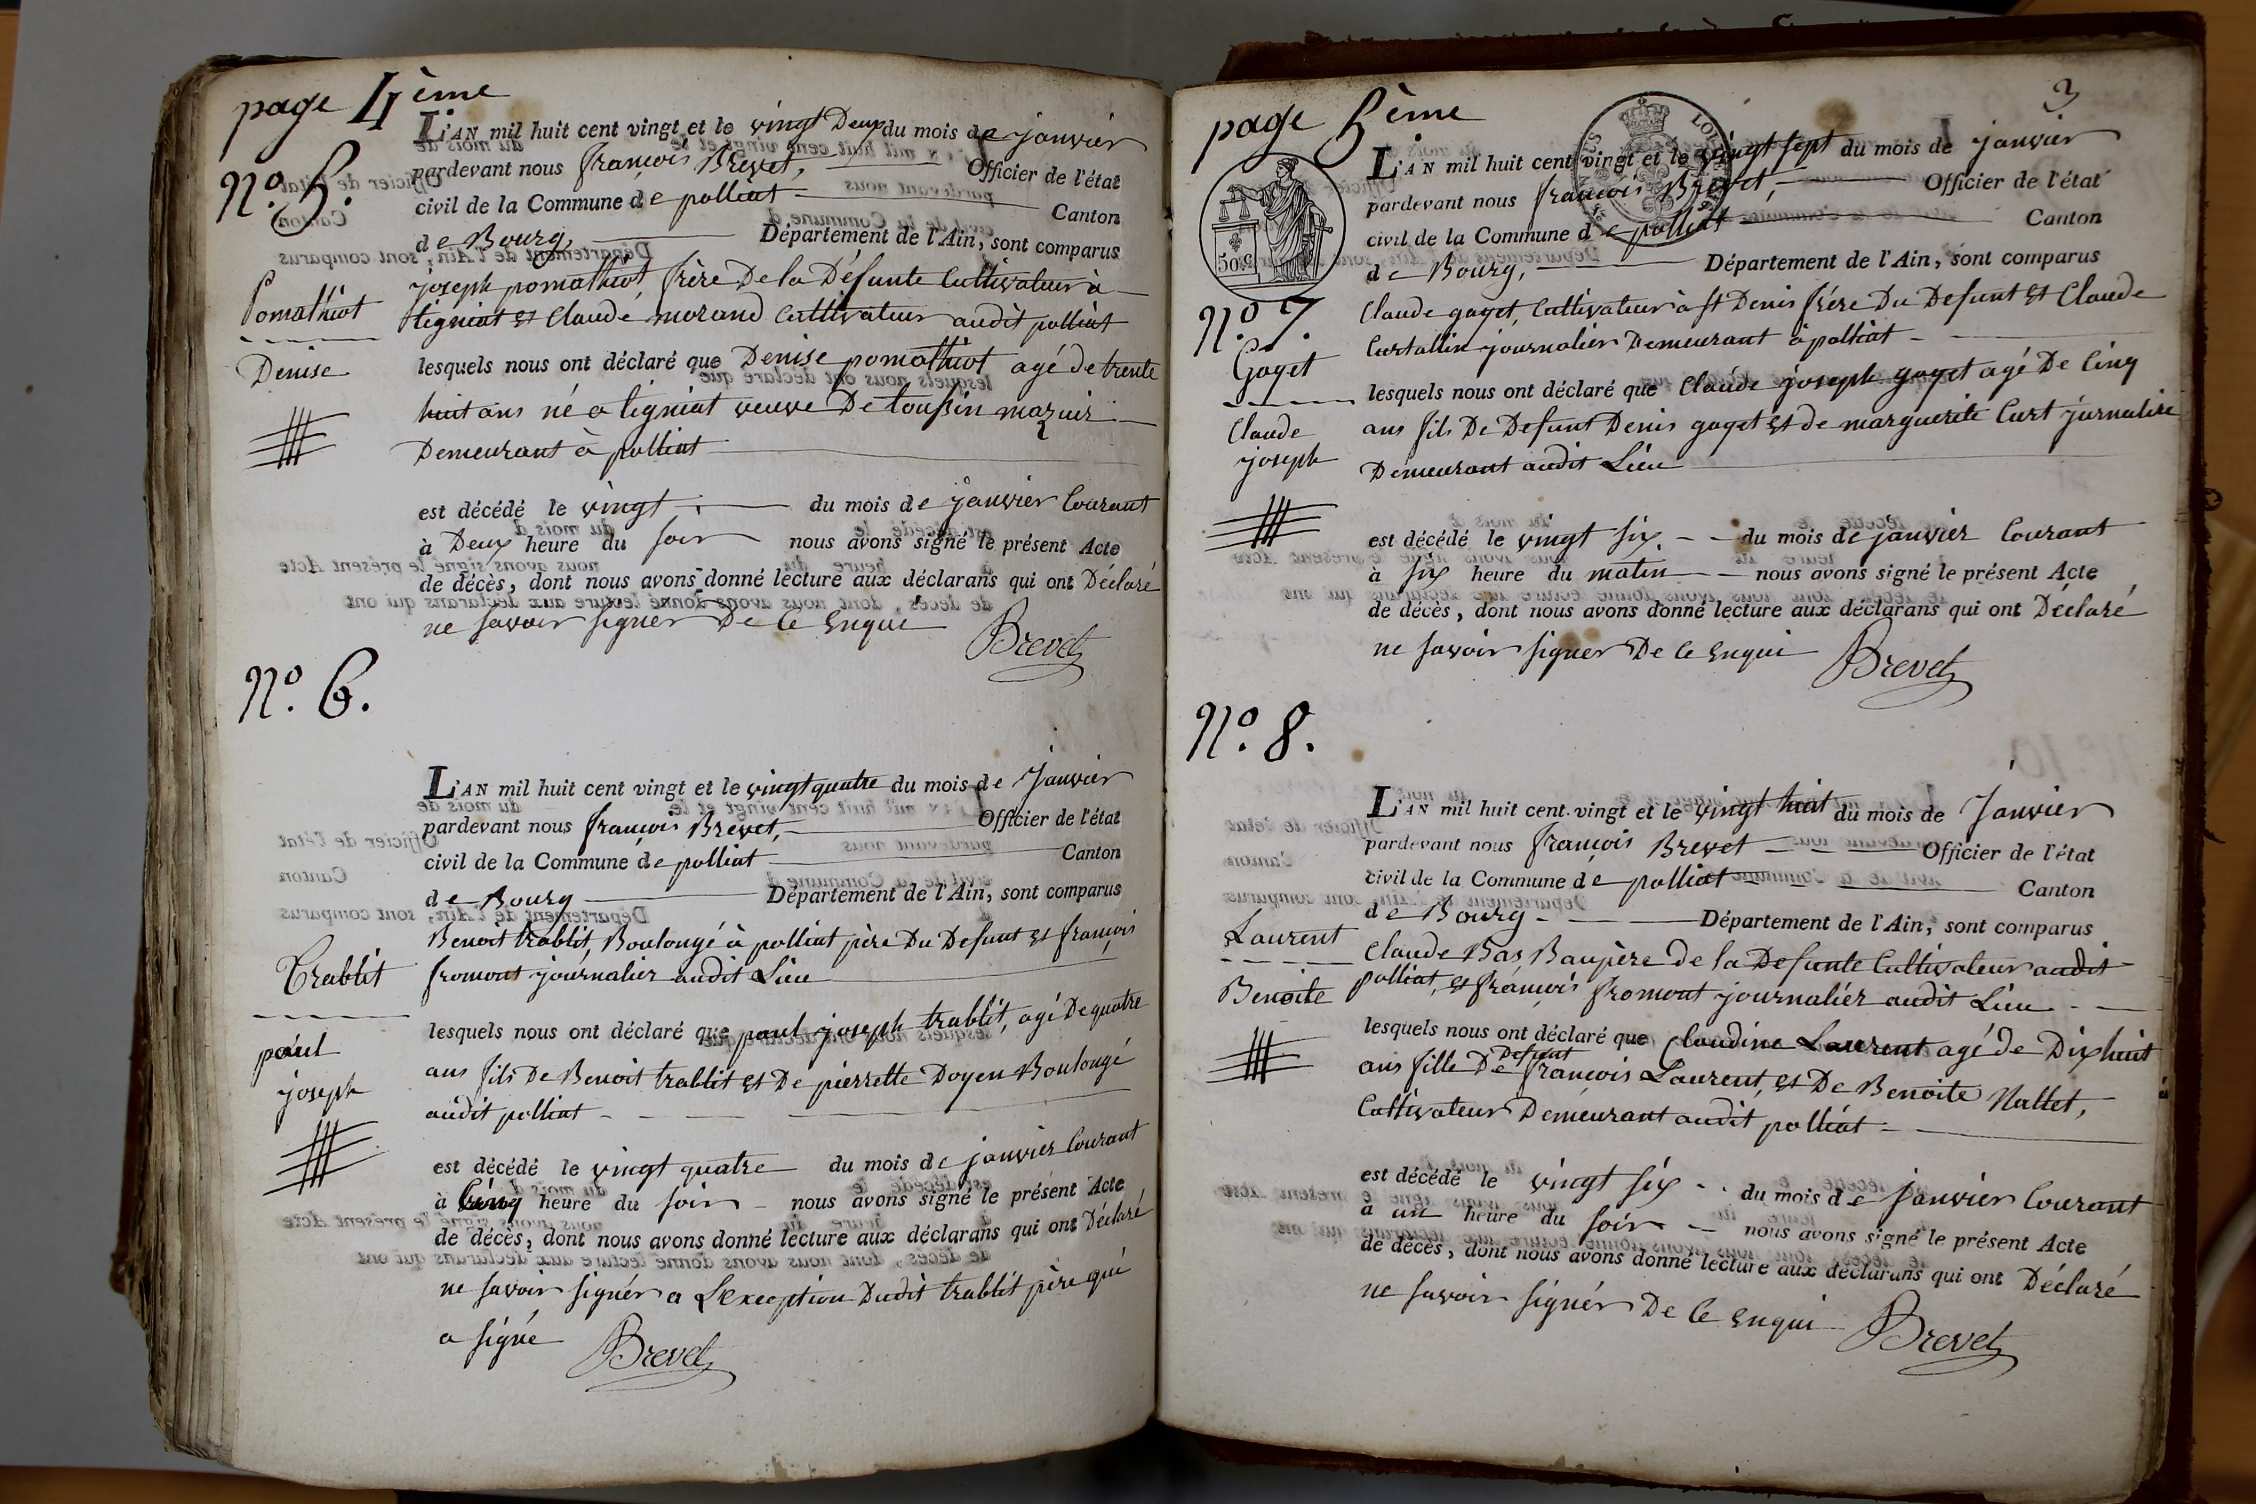 page 4ème
N.º 5.
L'AN mil huit cent vingt et le vingt Deux du mois de janvier
pardevant nous françois Brevet, Officier de l'état
civil de la Commune de polliat Canton
de Bourg, Département de l'Ain, sont comparus
Pomathiot
Denise
joseph pomathiot, frère De la Défunte Cultivateur à
ligniat et Claude morand Cultivateur audit polliat
lesquels nous ont déclaré que Denise pomathiot agé de trente
huit ans né a ligniat veuve De toussin mazuir
Demeurant à polliat
est décédé le vingt du mois de janvier Courant
à Deux heure du soir nous avons signé le présent Acte
de décès, dont nous avons donné lecture aux déclarans qui ont Déclaré
ne savoir signer De Ce Enqui
Brevet
N.º 6.
L'AN mil huit cent vingt et le vingt quatre du mois de Janvier
pardevant nous françois Brevet, Officier de l'état
civil de la Commune de polliat Canton
de Bourg Département de l'Ain, sont comparus
Trablit
paul
joseph
Benoit trablit, Boulongé à polliat père Du Defunt et françois
fromont journalier audit Lieu
lesquels nous ont déclaré que paul joseph trablit, agé De quatre
ans fils De Benoit trablit et De pierrette Doyen Boulongé
audit polliat
est décédé le vingt quatre du mois de janvier Courant
à Cinq heure du soir nous avons signé le présent Acte
de décès, dont nous avons donné lecture aux déclarans qui ont Déclaré
ne savoir signér a L'exception Dudit trablit père qui
a signé
Brevet
page 5ème
3
50 c
L'AN mil huit cent vingt et le vingt sept du mois de janvier
pardevant nous françois Brevet, Officier de l'état
civil de la Commune de polliat Canton
de Bourg, Département de l'Ain, sont comparus
N.º 7.
Goyet
Claude
joseph
Claude goyet, Cultivateur à st Denis frére Du Defunt et Claude
Curtallin journaliér Demeurant à polliat
lesquels nous ont déclaré que Claude joseph goyet agé De Cinq
ans fils De Defunt Denis goyet et de marguerite Curt jurnalire
Demeurant audit Lieu
est décédé le vingt six du mois de janvier Courant
à six heure du matin nous avons signé le présent Acte
de décès, dont nous avons donné lecture aux déclarans qui ont Déclaré
ne savoir signer De Ce Enqui
Brevet
N.º 8.
L'AN mil huit cent vingt et le vingt huit du mois de Janvier
pardevant nous françois Brevet Officier de l'état
civil de la Commune de polliat Canton
de Bourg Département de l'Ain, sont comparus
Laurent
Benoite
Claude Bas Baupère de la Defunte Cultivateur audit
polliat, et françois fromont journaliér audit Lieu
lesquels nous ont déclaré que Claudine Laurent agé de Dixhuit
ans fille De Defunt françois Laurent, et De Benoite Nallet,
Cultivateur Demeurant audit polliat
est décédé le vingt six du mois de janvier Courant
à un heure du soir nous avons signé le présent Acte
de décès, dont nous avons donné lecture aux déclarans qui ont Déclaré
ne savoir signér De Ce Enqui
Brevet